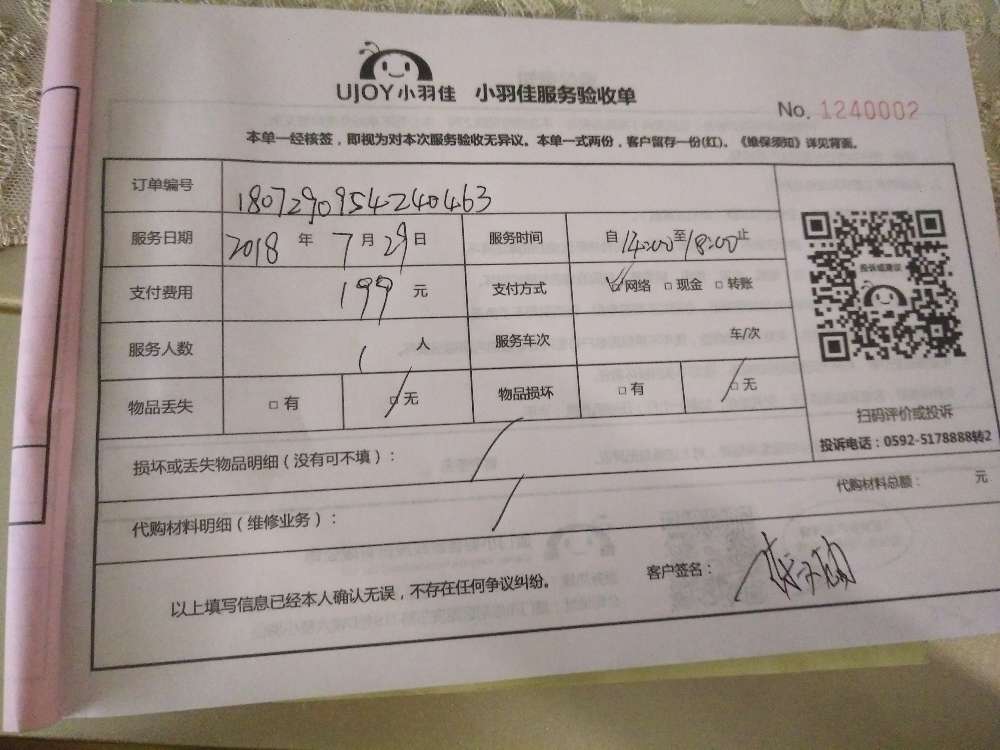 UJOY小羽佳 小羽佳服务验收单
No. 1240002
本单一经核签，即视为对本次服务验收无异议。本单一式两份，客户留存一份(红)。《维保须知》详见背面。
订单编号 180729095424​0463
服务日期 2018 年 7 月 29 日 服务时间 自 14:00 至 18:00 止
支付费用 199 元 支付方式 ☑网络 □现金 □转账
服务人数 1 人 服务车次 车/次
物品丢失 □有 ☑无 物品损坏 □有 ☑无
投诉或建议
扫码评价或投诉
投诉电话：0592-5178888转2
损坏或丢失物品明细（没有可不填）： /
代购材料明细（维修业务）： / 代购材料总额： 元
以上填写信息已经本人确认无误，不存在任何争议纠纷。 客户签名：